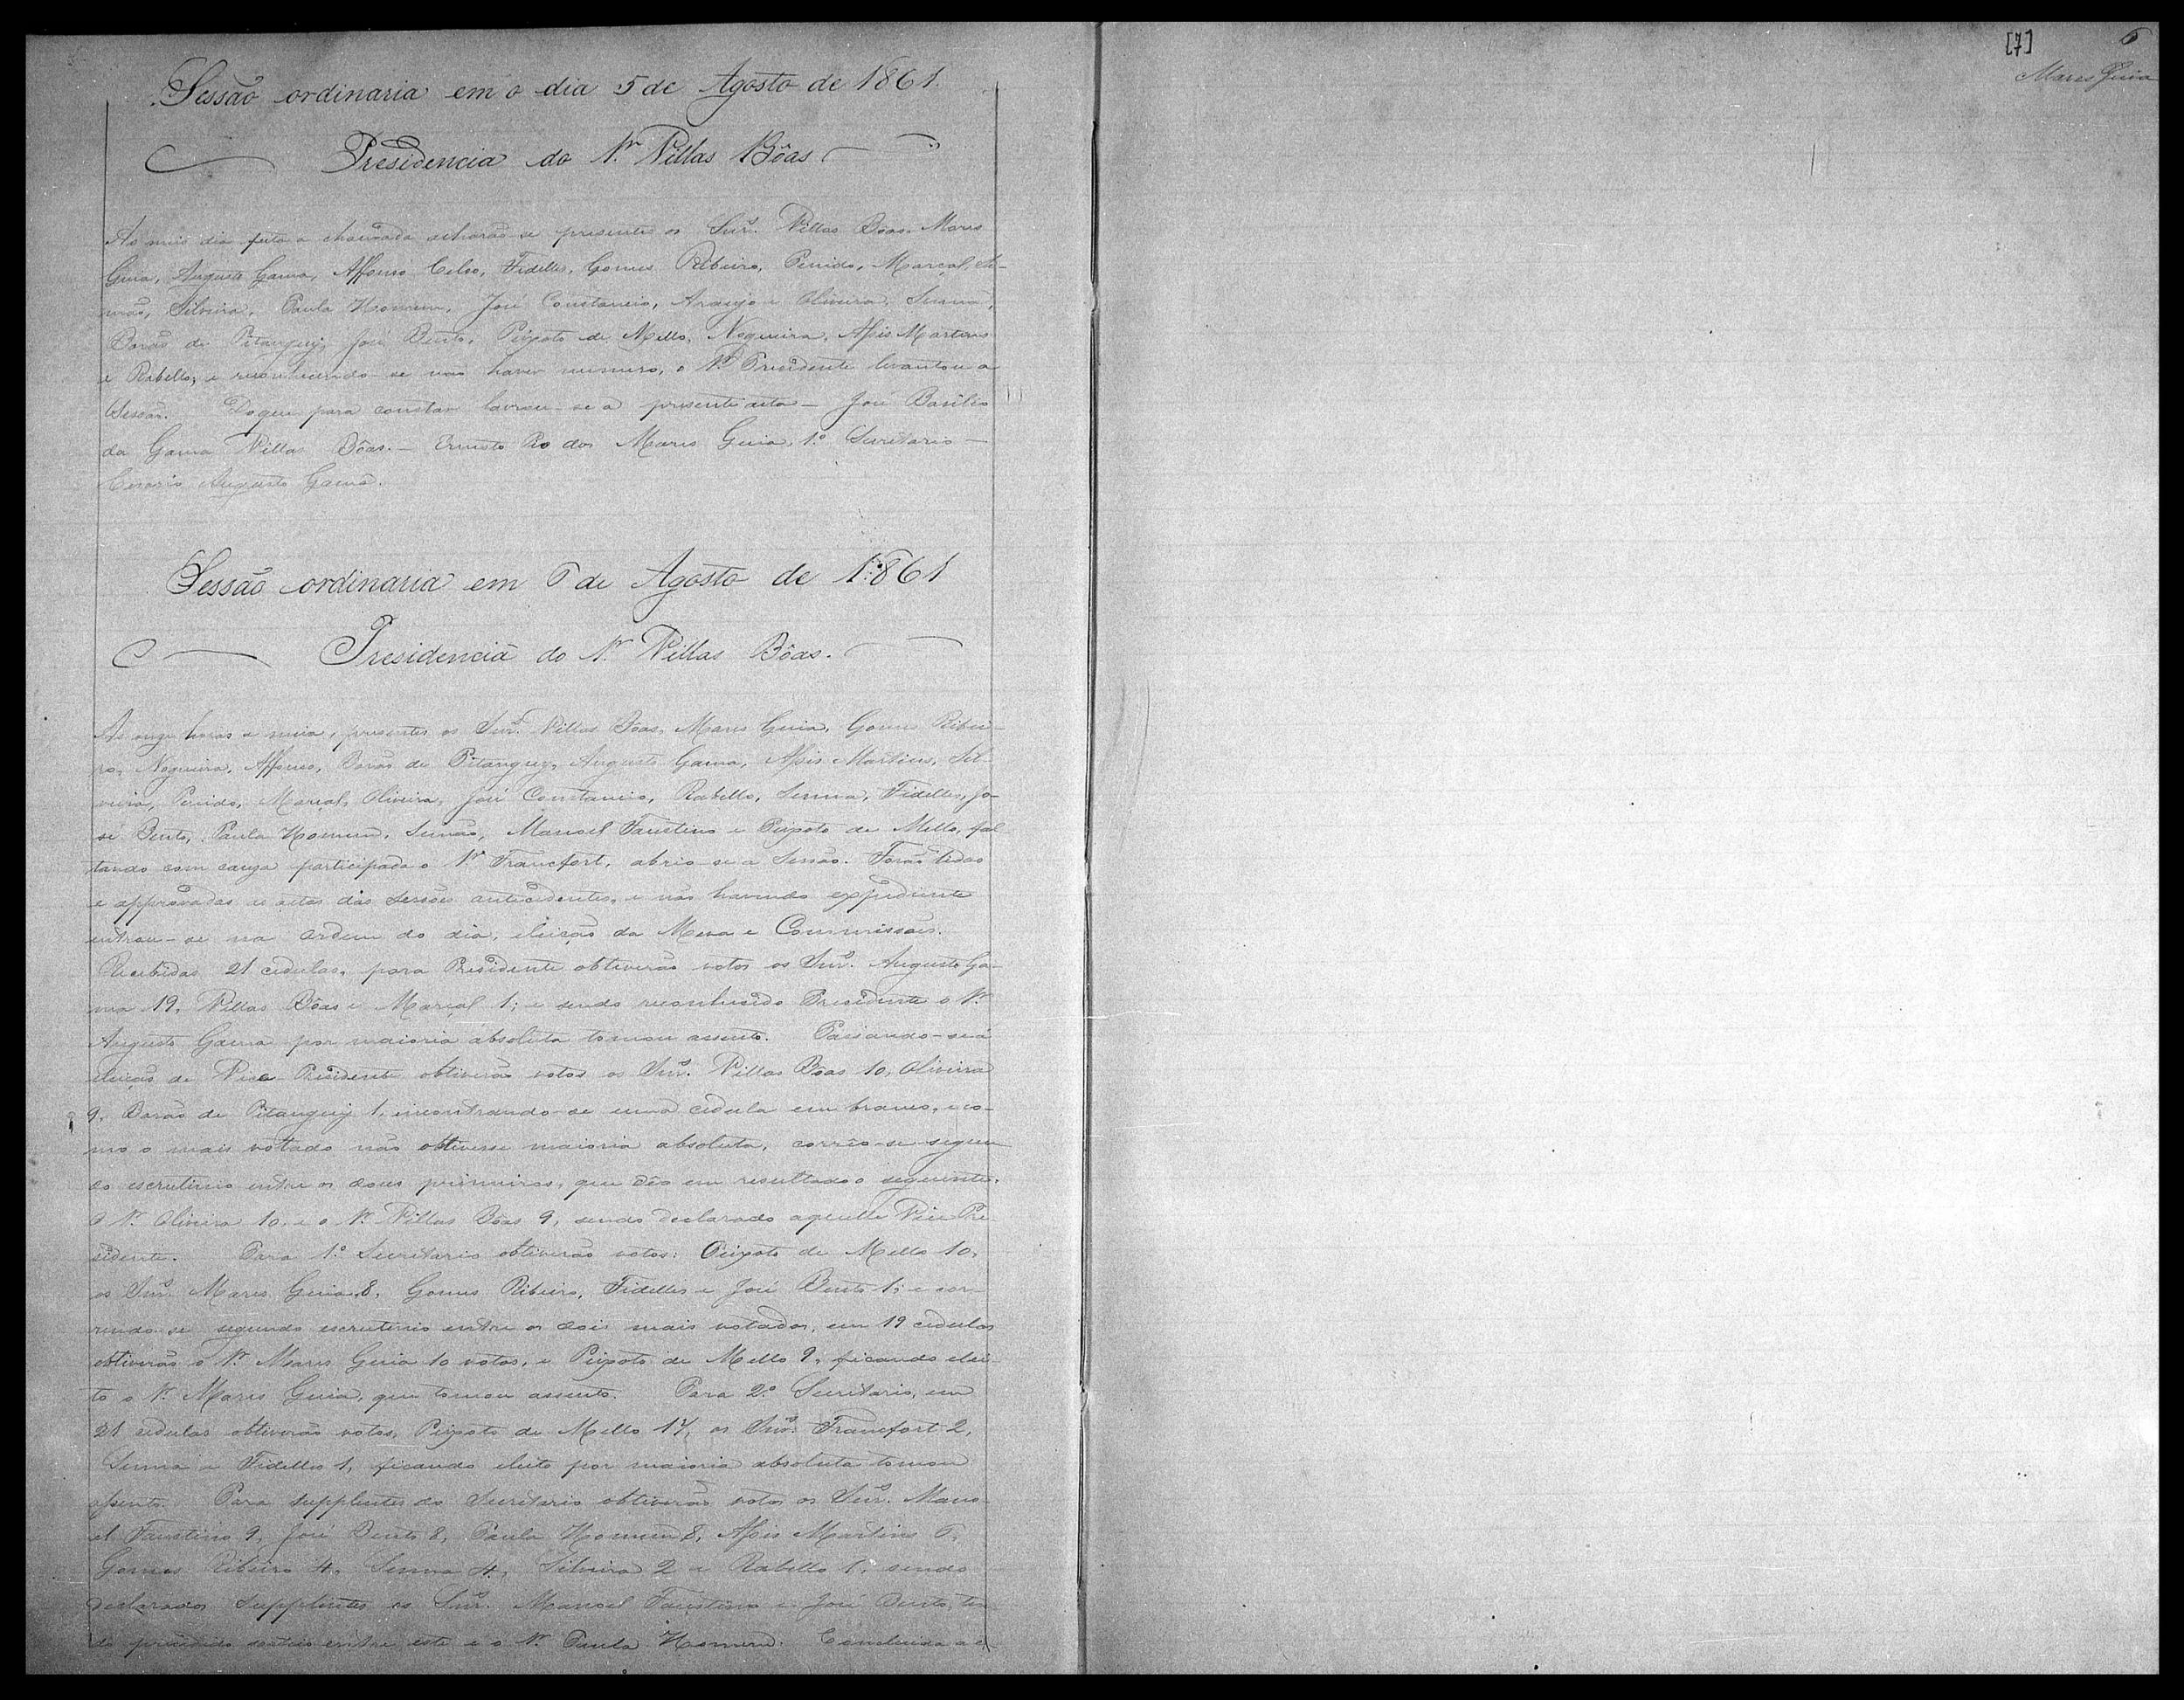 Sessão ordinaria em o dia 5 de Agosto de 1861.
Presidencia do Sr. Villas Bôas
Ao meio dia feita a chamada acharão-se presentes os Snrs. Villas Bôas, Mares
Guia, Augusto Gama, Affonso Celso, Fidelles, Gomes Ribeiro, Penido, Marçal, Si-
mão, Silveira, Paula Homem, José Constancio, Araujo e Oliveira, Senna,
Barão de Pitanguy, José Bento, Peixoto de Mello, Nogueira, Assis Martins
e Rabello, e reconhecendo-se não haver numero, o Sr. Presidente levantou a
Sessão. Do que para constar lavrou-se a presente acta - José Basilio
da Gama Villas Bôas. - Ernesto Pio dos Mares Guia, 1º Secretario -
Cesario Augusto Gama.
Sessão ordinaria em 6 de Agosto de 1861
Presidencia do Sr. Villas Bôas.
As onze horas e meia, presentes os Snrs. Villas Bôas, Mares Guia, Gomes Ribei-
ro, Nogueira, Affonso, Barão de Pitanguy, Augusto Gama, Assis Martins, Sil-
veira, Penido, Marçal, Oliveira, José Constancio, Rabello, Senna, Fidelles, Jo-
sé Bento, Paula Homem, Simão, Manoel Faustino e Peixoto de Mello, fal
tando com causa participada o Sr. Francfort, abrio-se a Sessão. Forão lidas
e approvadas as actas das Sessões antecedentes, e não havendo expediente
entrou-se na ordem do dia, eleição da Mesa e Commissões.
Recebidas 21 cedulas, para Presidente obtiverão votos os Snrs. Augusto Ga-
ma 19, Villas Bôas e Marçal 1; e sendo reconhecido Presidente o Sr.
Augusto Gama por maioria absoluta tomou assento. Passando-se á
eleição de Vice Presidente obtiverão votos os Snrs. Villas Bôas 10, Oliveira
9, Barão de Pitanguy 1, encontrando-se uma cedula em branco, e co-
mo o mais votado não obtivesse maioria absoluta, correo-se segun
do escrutinio entre os dous primeiros, que deo em resultado o seguinte,
o Sr. Oliveira 10, e o Sr. Villas Bôas 9, sendo declarado aquelle Vice Pre-
sidente. Para 1º Secretario obtiverão votos: Peixoto de Mello 10,
os Snrs. Mares Guia 8, Gomes Ribeiro, Fidelles e José Bento 1; e cor-
rendo-se segundo escrutinio entre os dois mais votados, em 19 cedulas
obtiverão o Sr. Mares Guia 10 votos, e Peixoto de Mello 9, ficando elei-
to o Sr. Mares Guia, que tomou assento. Para 2º Secretario, em
21 cedulas obtiverão votos, Peixoto de Mello 17, os Snrs. Francfort 2,
Senna e Fidelles 1, ficando eleito por maioria absoluta tomou
assento. Para supplentes do Secretario obtiverão votos os Snrs. Mano-
el Faustino 9, José Bento 8, Paula Homem 8, Assis Martins 6,
Gomes Ribeiro 4, Senna 4, Silveira 2 e Rabello 1, sendo
declarados Supplentes os Snrs. Manoel Faustino e José Bento, ten
do precedido sorteio entre este e o Sr. Paula Homem. Concluida a e-
[7] 6
Mares Guia